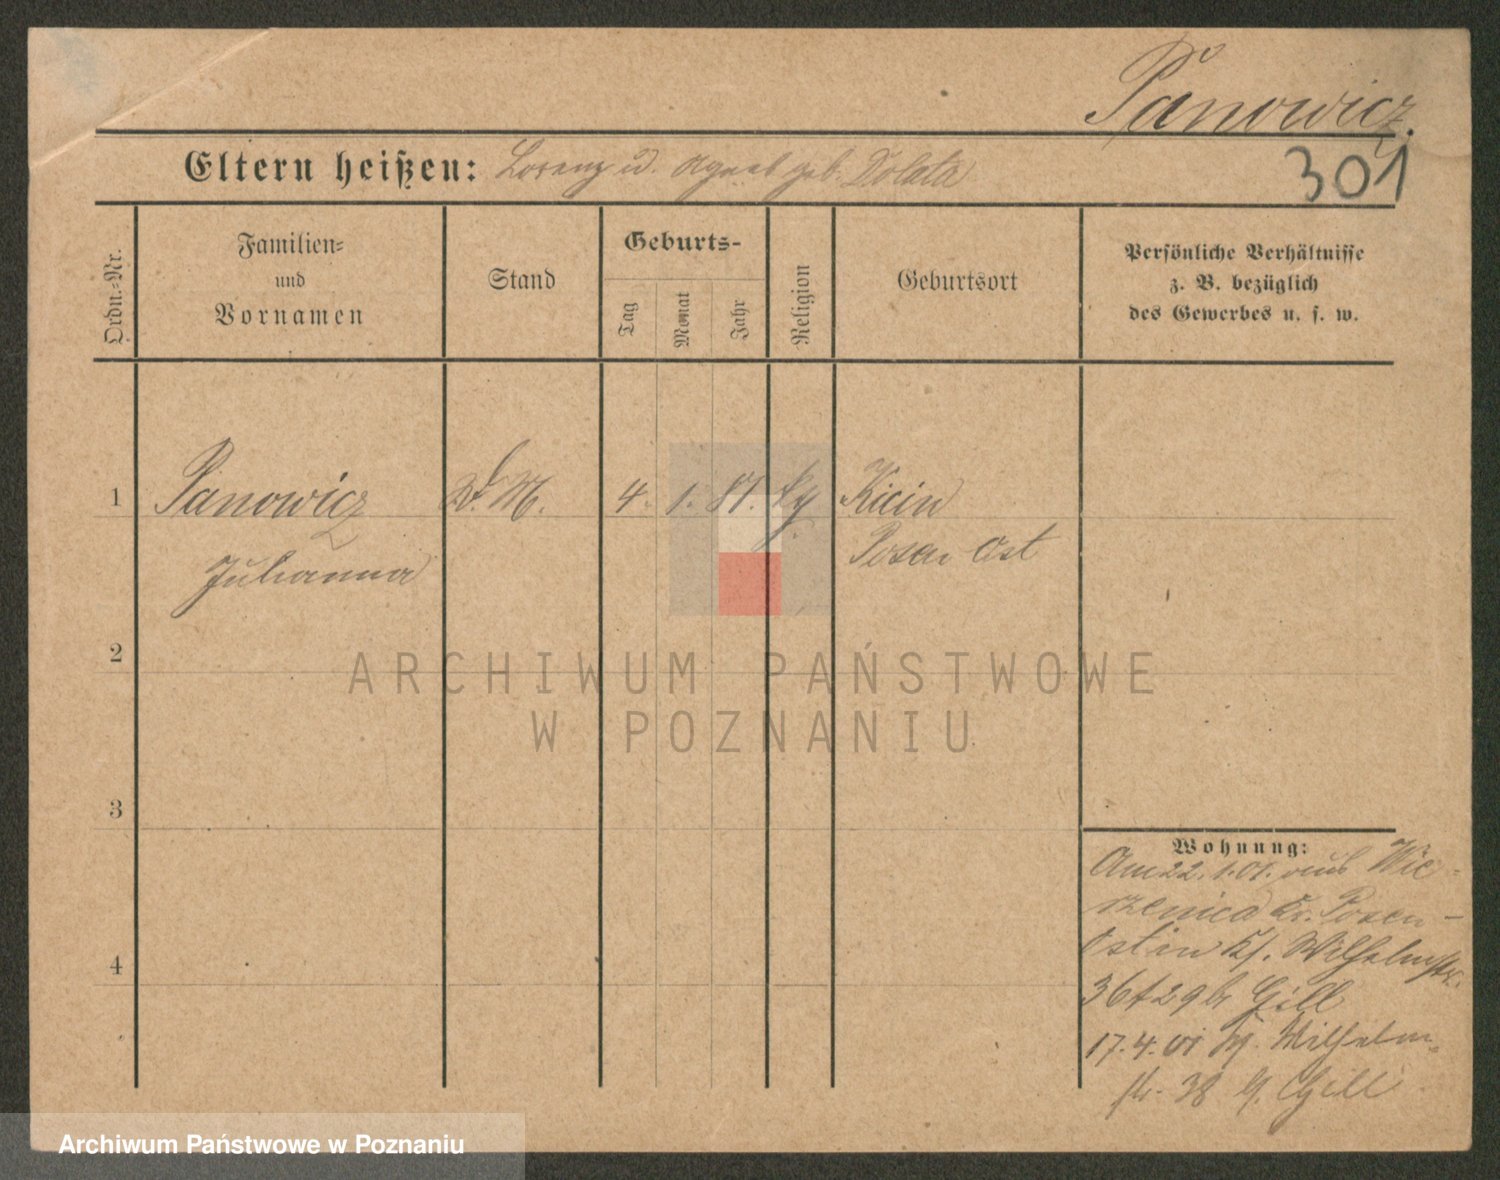 Panowicz.
301
Eltern heißen: Lorenz u. Agnes geb. Dolata
Ordn.-Nr.
Familien-
und
Vornamen
Stand
Geburts-
Tag
Monat
Jahr
Religion
Geburtsort
Persönliche Verhältnisse
z. B. bezüglich
des Gewerbes u. s. w.
1 Panowicz D. M. 4. 1. 81. Kicin
Julianna Posen Ost
2
3
4
Wohnung:
Am 22.1.01. aus Wie-
rzenica Kr. Posen-
Ost in Wilhelmstr.
Gill
17.4.01 Wilhelm-
str. 38 Gill
ARCHIWUM PAŃSTWOWE
W POZNANIU
Archiwum Państwowe w Poznaniu